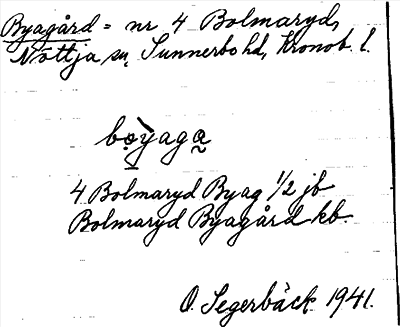 Byagård = nr 4 Bolmaryd,
Nöttja sn, Sunnerbo hd, Kronob. l.
4 Bolmaryd Byag 1/2 jb
Bolmaryd Byagård kb.
O. Segerbäck 1941.